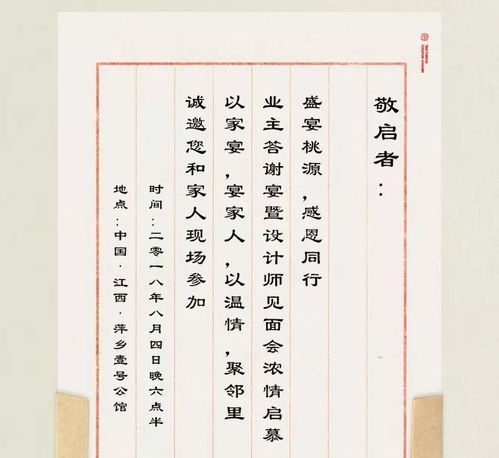 敬启者：
盛宴桃源，感恩同行
业主答谢宴暨设计师见面会浓情启慕
以家宴，宴家人，以温情，聚邻里
诚邀您和家人现场参加
时间：二零一八年八月四日晚六点半
地点：中国·江西·萍乡壹号公馆